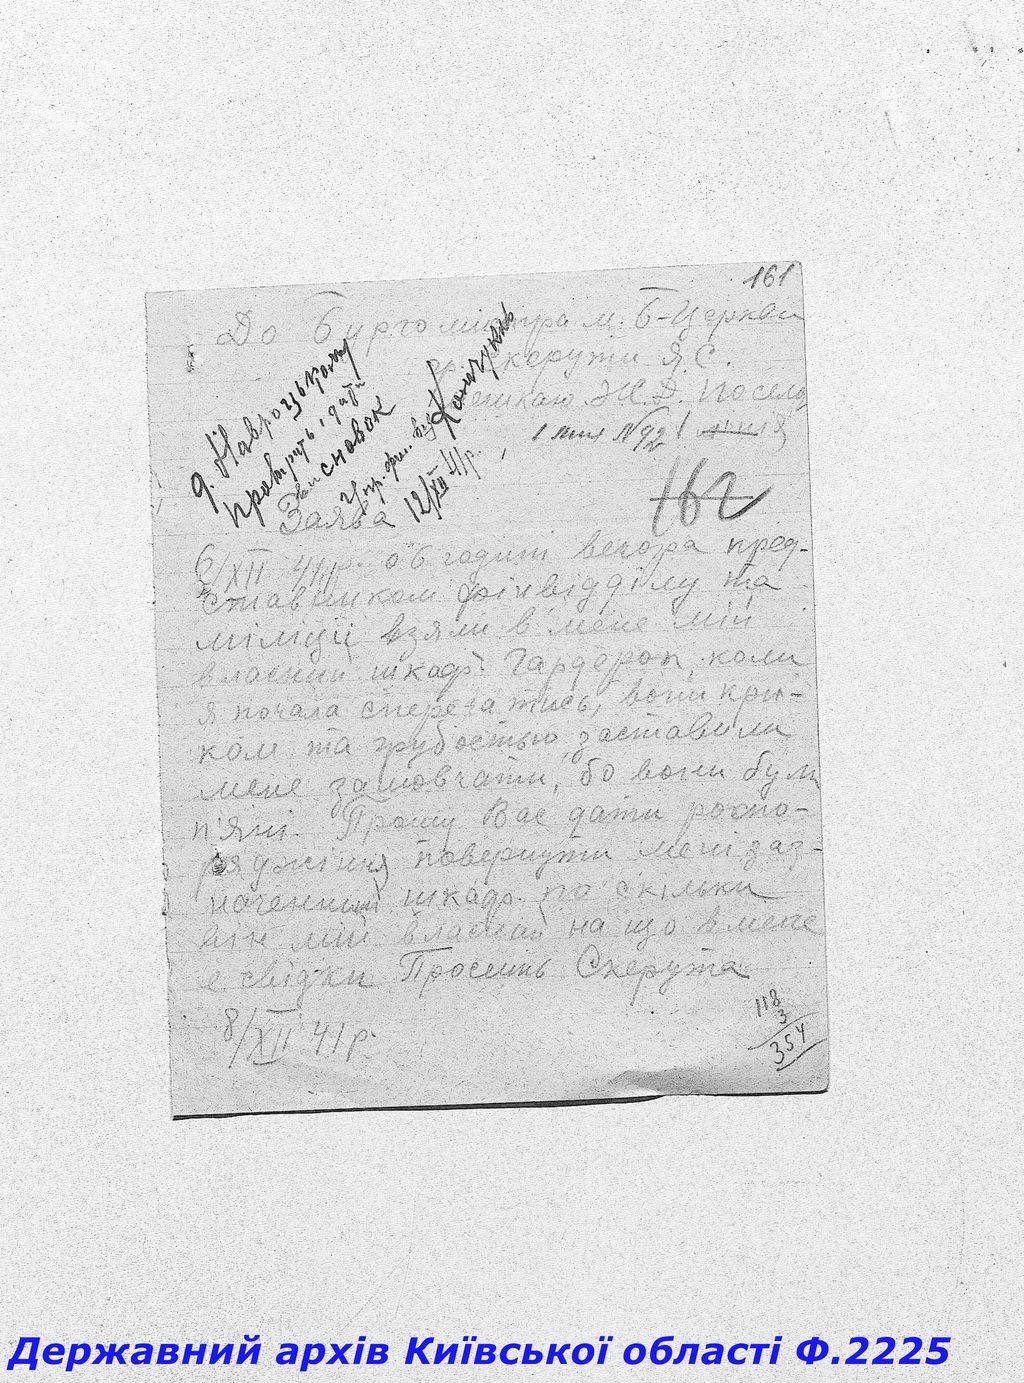 161
До Бургомістра м. Б-Церкви
гр. Скерути Я. С.
мешкаю Ж. Д. Посело
1 лінія №92
162
д. Навроцькому
провірить і дати
висновок
12/XII 41р.
Заява
6/XII 41р. о 6 годині вечора пред-
ставником фінвідділу та
міліції взяли в мене мій
власний шкаф. Гардероп, коли
я почала сперечатись, вони кри-
ком та грубостью заставили
мене замовчати, бо вони були
п'яні. Прошу Вас дати роспо-
ряджіння повернути мені заз-
наченний шкаф. по скільки
він мій власний на що в мене
є свідки Просить Скерута
8/XII 41р.
118
3
354
Державний архів Київської області Ф.2225